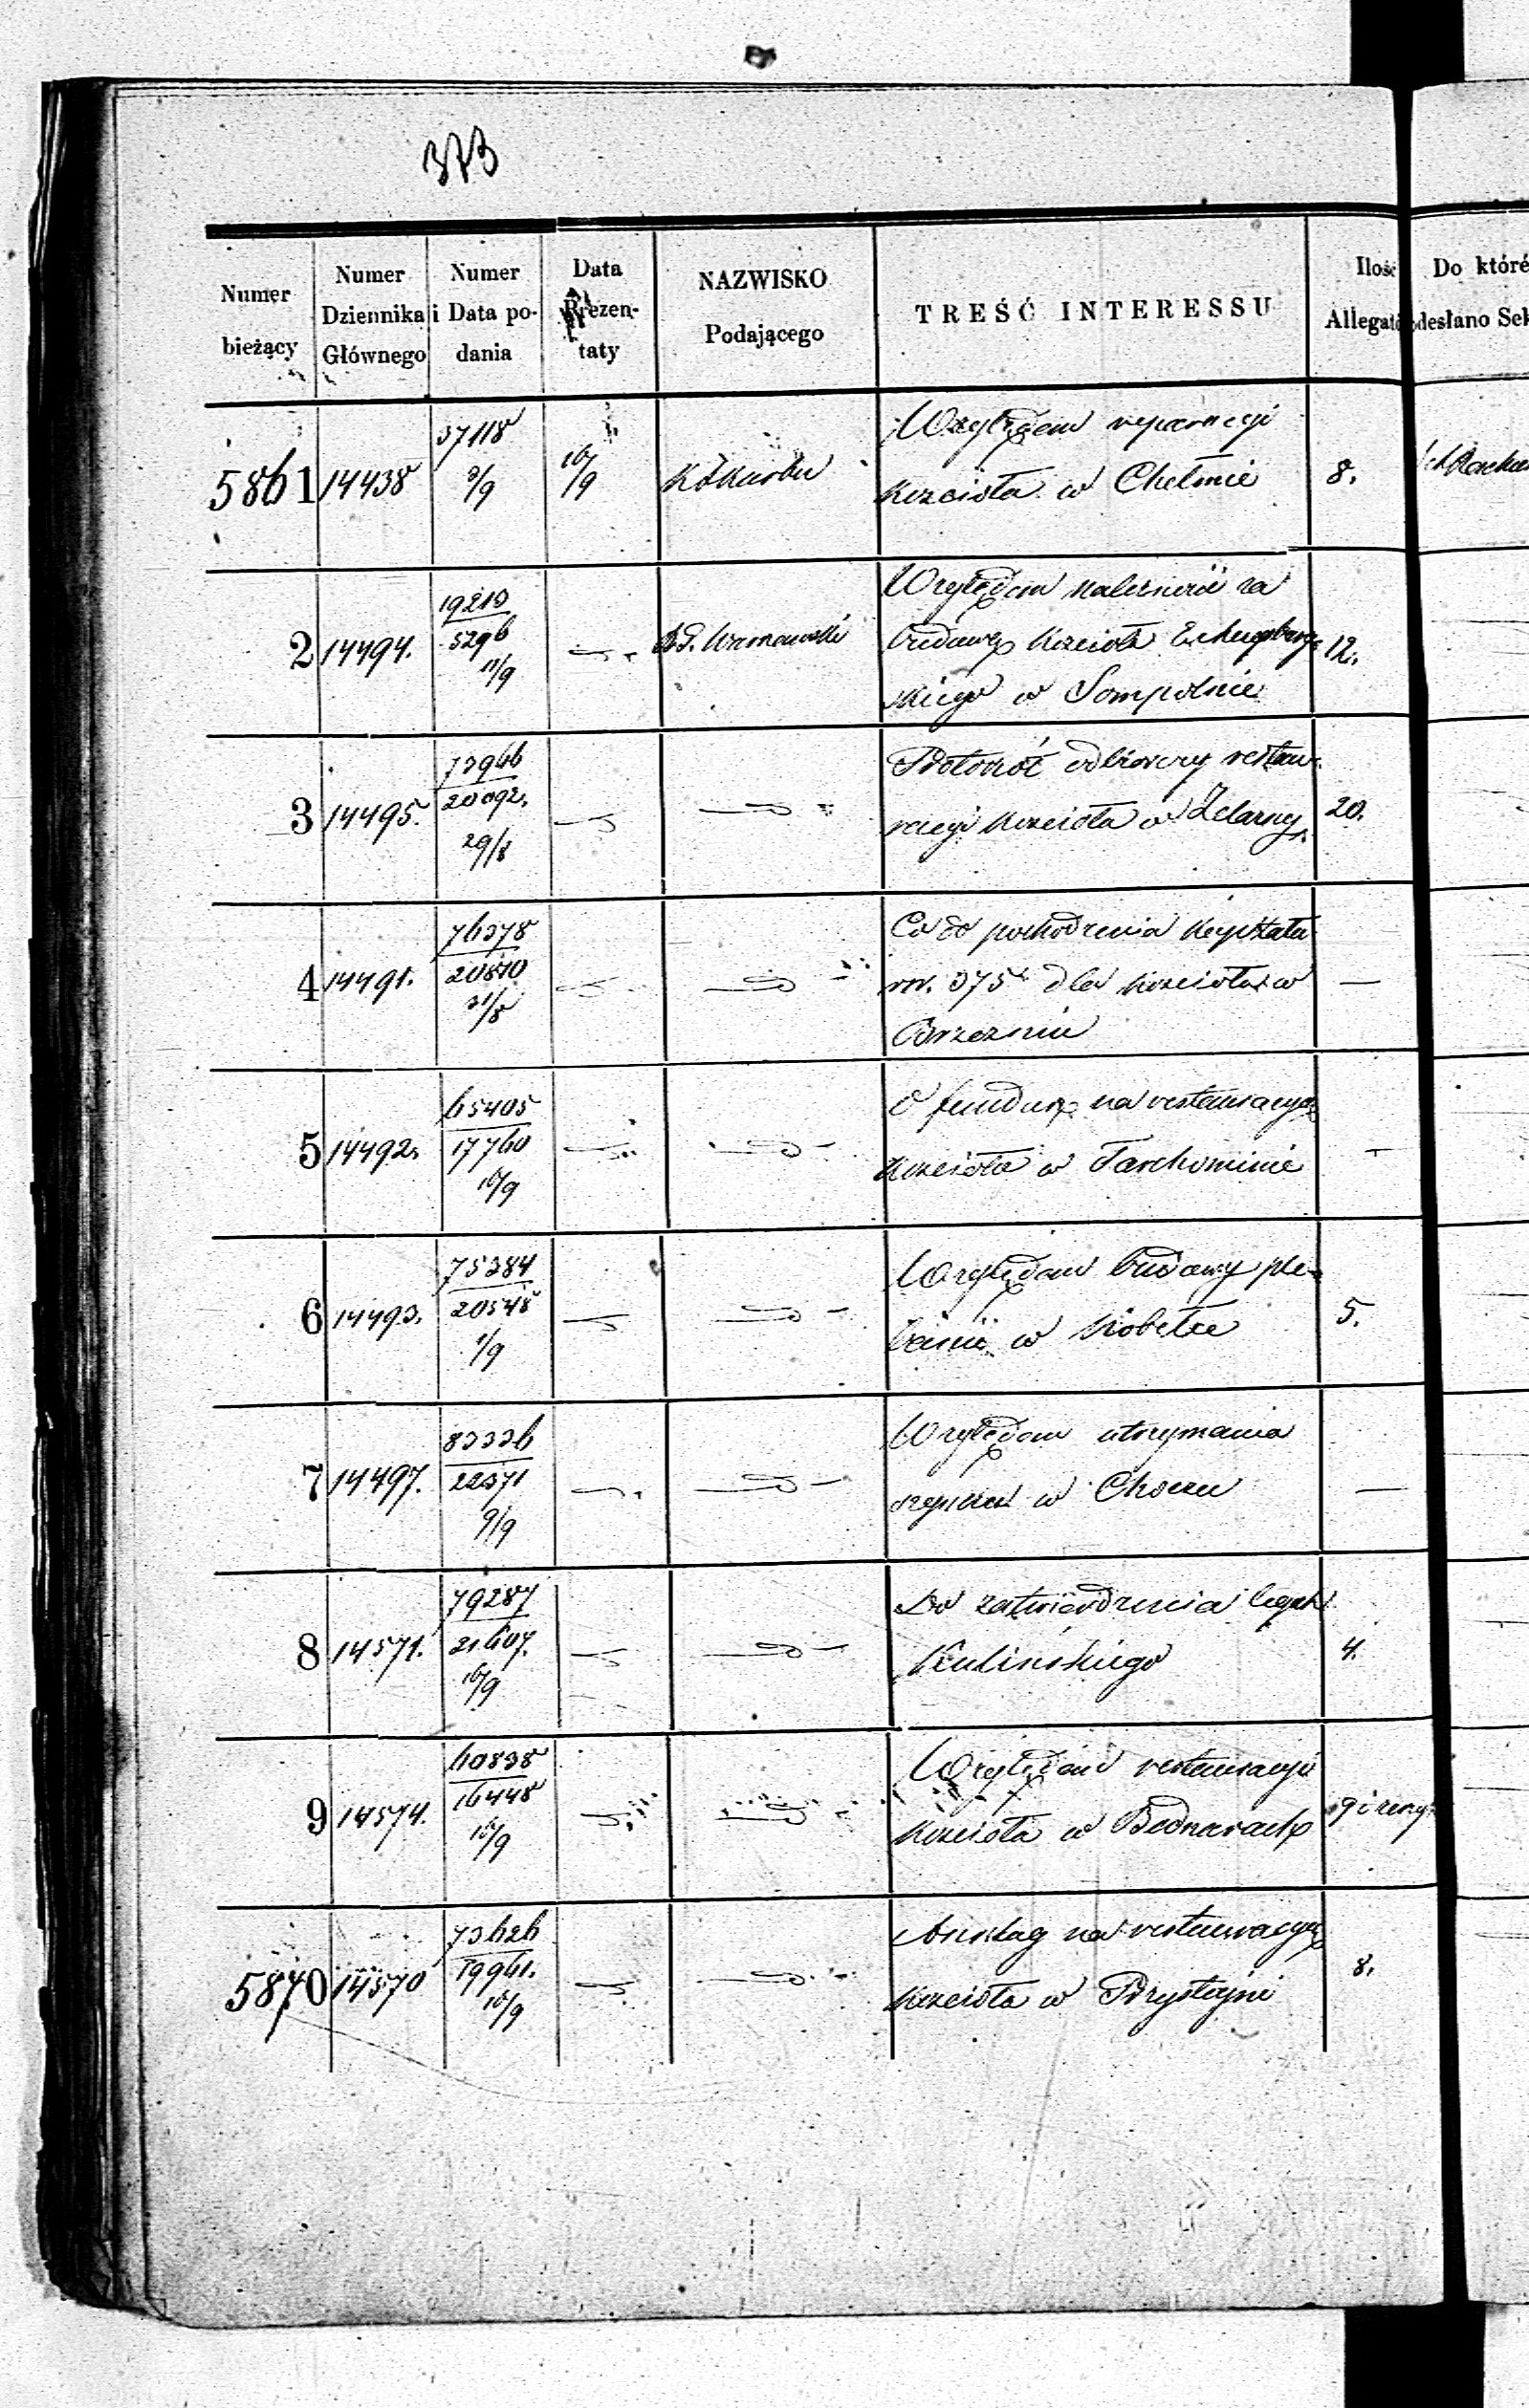 373
Numer bieżący | Numer Dziennika Głównego | Numer i Data podania | Data Prezentaty | NAZWISKO Podającego | TREŚĆ INTERESSU | Ilość Allegatów | Do któré odesłano Sek
5861 | 14438 | 37118 3/9 | 10/9 | | Względem reparacyi
kościoła w Chełmie | 8.
2 | 14494. | 19210 5296 11/9 | | | Względem należności za
budowę kościoła
skiego w Sompolnie | 12.
3 | 14495. | 73966 20092. 29/8 | | — | odbiorczy restau-
racyi kościoła w Żelazny | 20.
4 | 14491. | 76378 20870 31/8 | | — | Co do pochodzenia kapitału
rsr. 375 dla kościoła w
Brzeźniu | —
5 | 14492. | 65405 17760 10/9 | | — | O fundusz na restauracyę
kościoła w Tarchominie | —
6 | 14493. | 75384 20548 1/9 | | — | Względem budowy ple-
banii w Kobełce | 5.
7 | 14497. | 83336 22371 9/9 | | — | Względem utrzymania
szpitala w Choczu | —
8 | 14571. | 79287 21607. 10/9 | | — | Do zatwierdzenia
Kulińskiego | 4.
9 | 14574. | 60838 16448 10/9 | | — | Względem restauracyi
kościoła w Bednarach | 9 i
5870 | 14570 | 73626 19961. 10/9 | | — | Anszlag na restauracyę
kościoła w Przystajni | 8.